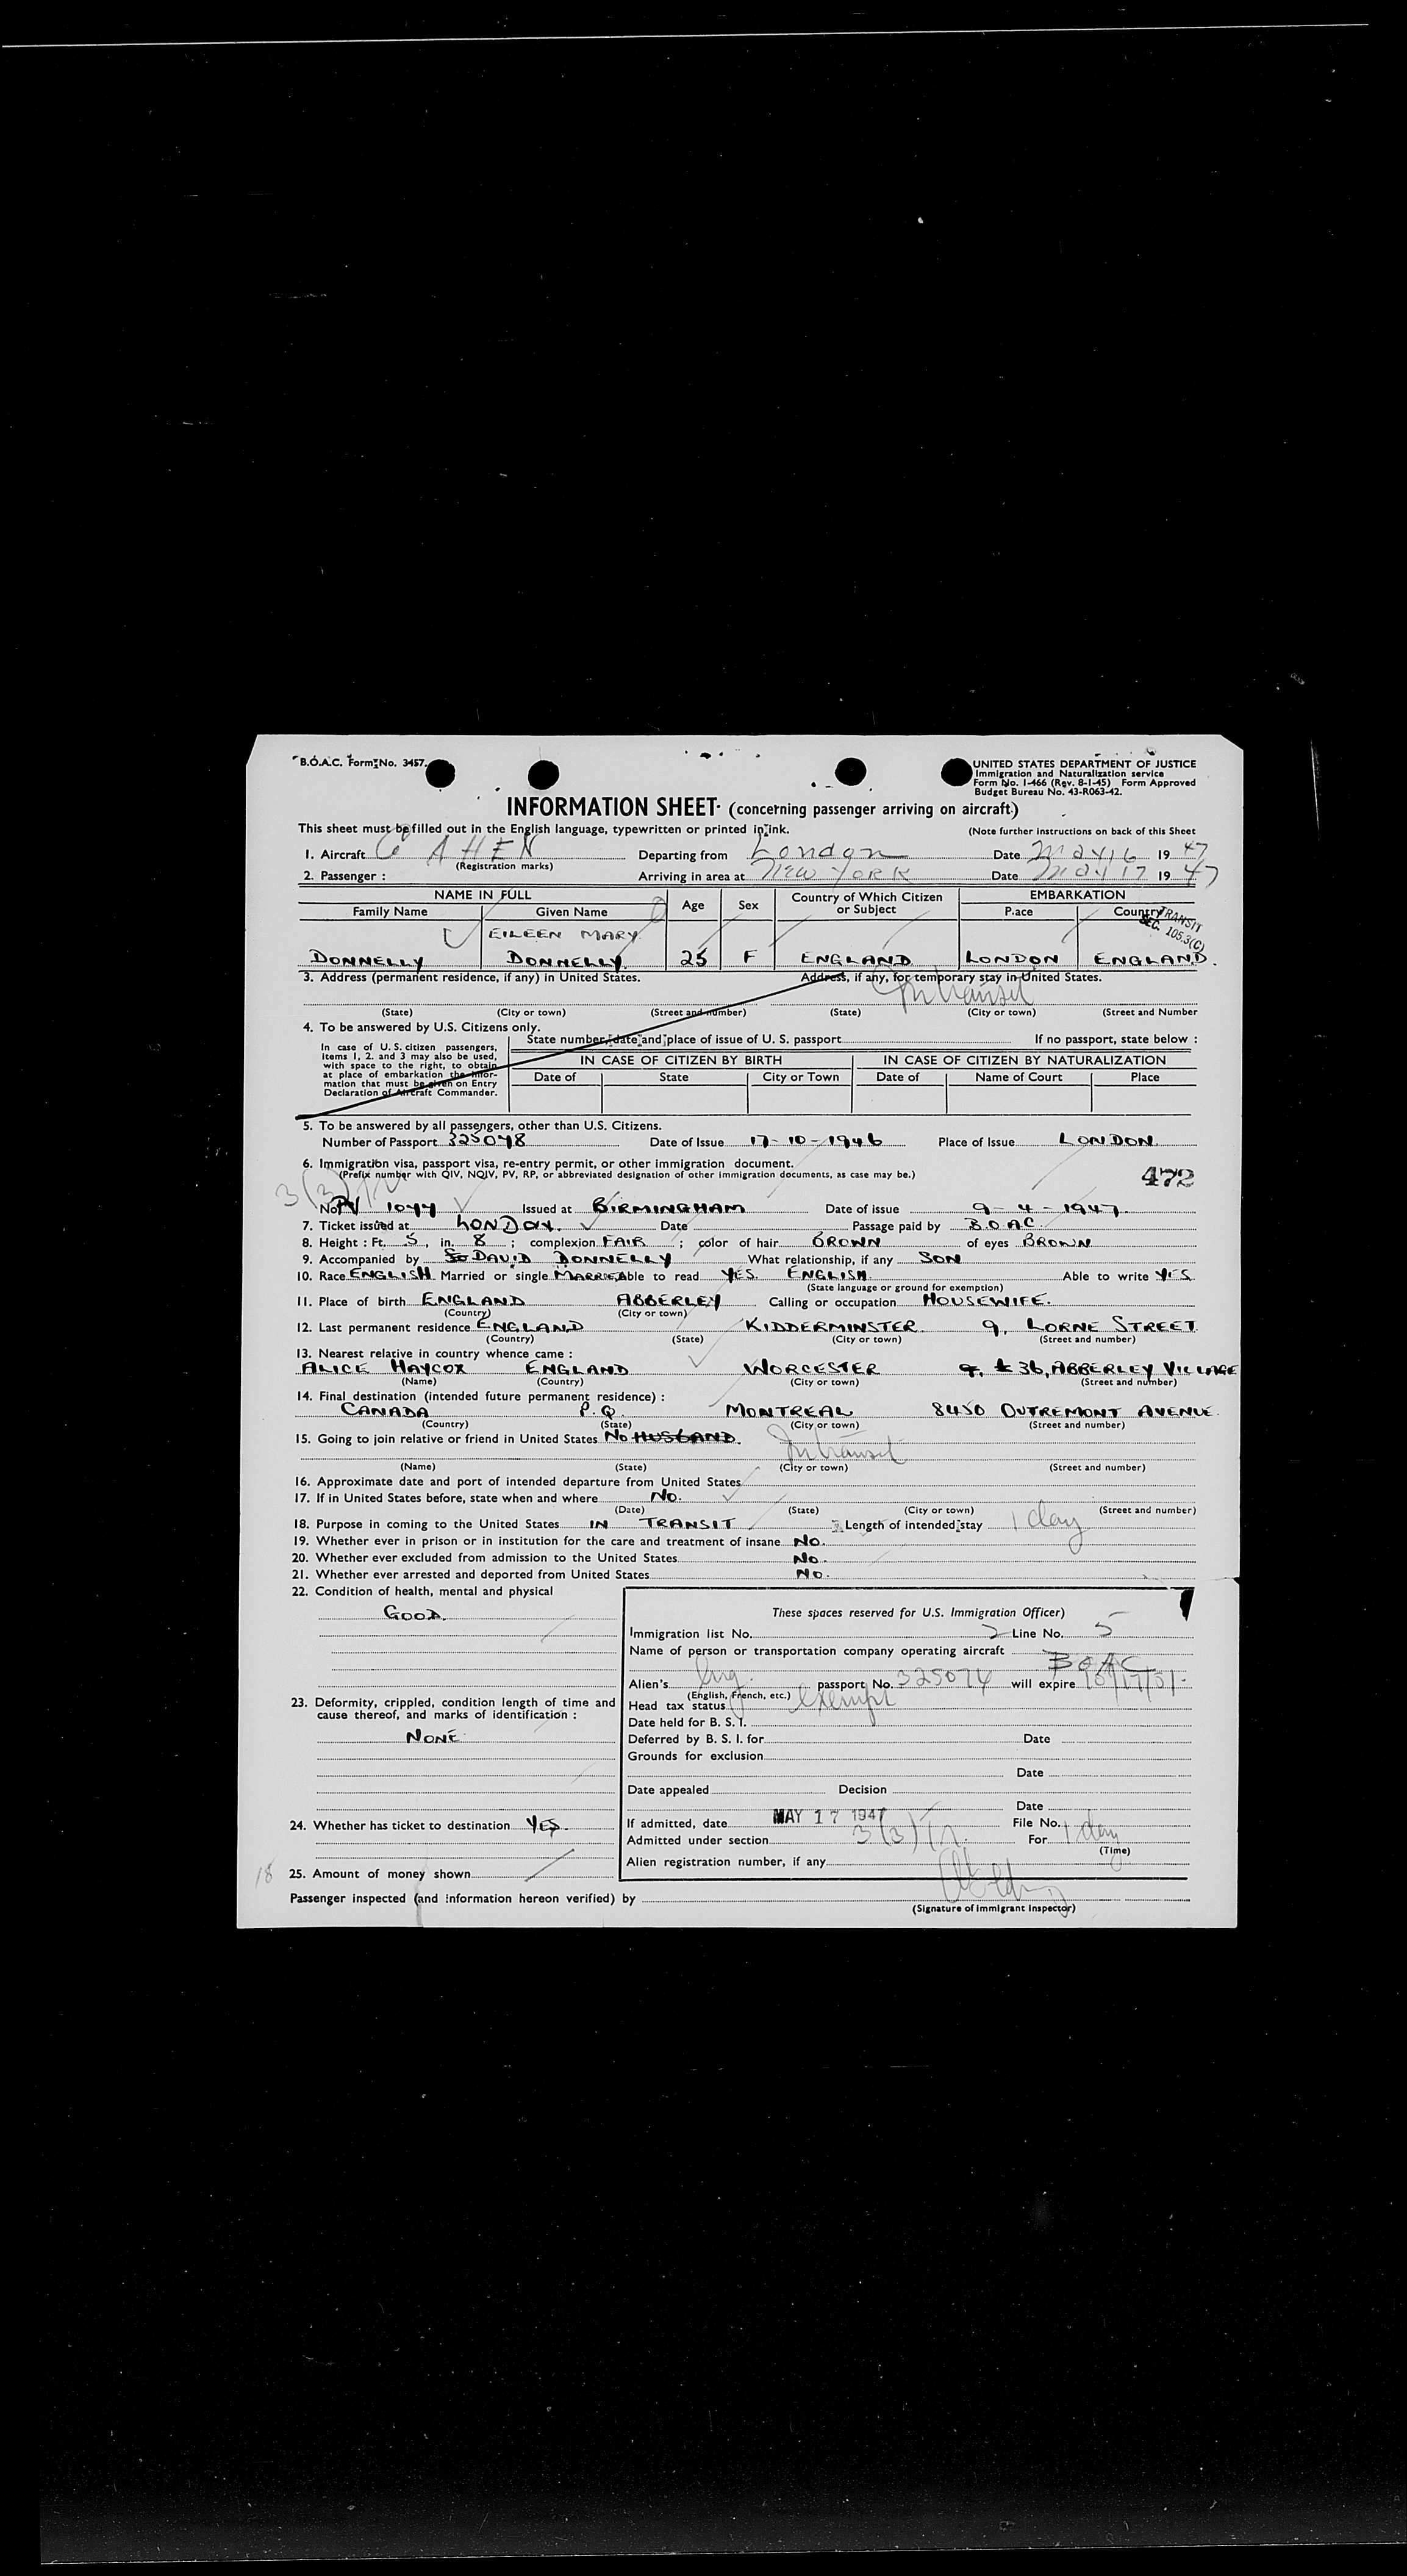 B.O.A.C. Form No. 3457.
UNITED STATES DEPARTMENT OF JUSTICE
Immigration and Naturalization service
Form No. I-466 (Rev. 8-1-45) Form Approved
Budget Bureau No. 43-R063-42.
INFORMATION SHEET (concerning passenger arriving on aircraft)
This sheet must be filled out in the English language, typewritten or printed in ink.
(Note further instructions on back of this Sheet
1. Aircraft G AHEN Departing from London Date May 16 1947
(Registration marks)
2. Passenger : Arriving in area at New York Date May 17 1947
NAME IN FULL Age Sex Country of Which Citizen or Subject EMBARKATION
Family Name Given Name Place Country
TRANSIT SEC. 105.3(C)
EILEEN MARY
DONNELLY DONNELLY 25 F ENGLAND LONDON ENGLAND.
3. Address (permanent residence, if any) in United States. Address, if any, for temporary stay in United States.
In transit
(State) (City or town) (Street and number) (State) (City or town) (Street and Number
4. To be answered by U.S. Citizens only.
In case of U.S. citizen passengers, items 1, 2. and 3 may also be used, with space to the right, to obtain at place of embarkation the information that must be given on Entry Declaration of Aircraft Commander.
State number, date and place of issue of U. S. passport If no passport, state below :
IN CASE OF CITIZEN BY BIRTH IN CASE OF CITIZEN BY NATURALIZATION
Date of State City or Town Date of Name of Court Place
5. To be answered by all passengers, other than U.S. Citizens.
Number of Passport 325048 Date of Issue 17-10-1946 Place of Issue LONDON.
6. Immigration visa, passport visa, re-entry permit, or other immigration document.
(Prefix number with QIV, NQIV, PV, RP, or abbreviated designation of other immigration documents, as case may be.)
472
3(3)
No. PV 1044 Issued at BIRMINGHAM Date of issue 9-4-1947.
7. Ticket issued at LONDON. Date Passage paid by B.O.A.C.
8. Height : Ft. 5, in. 8 ; complexion FAIR ; color of hair BROWN of eyes BROWN
9. Accompanied by DAVID DONNELLY What relationship, if any SON
10. Race ENGLISH Married or single MARRIED Able to read YES. ENGLISH. Able to write YES
(State language or ground for exemption)
11. Place of birth ENGLAND ABBERLEY Calling or occupation HOUSEWIFE.
(Country) (City or town)
12. Last permanent residence ENGLAND KIDDERMINSTER 9, LORNE STREET
(Country) (State) (City or town) (Street and number)
13. Nearest relative in country whence came :
ALICE HAYCOX ENGLAND WORCESTER 36, ABBERLEY VILLAGE
(Name) (Country) (City or town) (Street and number)
14. Final destination (intended future permanent residence) :
CANADA P.Q. MONTREAL 8450 OUTREMONT AVENUE.
(Country) (State) (City or town) (Street and number)
15. Going to join relative or friend in United States No HUSBAND.
In transit
(Name) (State) (City or town) (Street and number)
16. Approximate date and port of intended departure from United States
17. If in United States before, state when and where No.
(Date) (State) (City or town) (Street and number)
18. Purpose in coming to the United States IN TRANSIT Length of intended stay 1 day
19. Whether ever in prison or in institution for the care and treatment of insane No.
20. Whether ever excluded from admission to the United States No.
21. Whether ever arrested and deported from United States No.
22. Condition of health, mental and physical
GOOD.
These spaces reserved for U.S. Immigration Officer)
Immigration list No. 2 Line No. 5
Name of person or transportation company operating aircraft BOAC
Alien's Eng. passport No. 325074 will expire 10/17/51.
(English, French, etc.)
Head tax status Exempt
23. Deformity, crippled, condition length of time and cause thereof, and marks of identification :
NONE
Date held for B. S. I.
Deferred by B. S. I. for Date
Grounds for exclusion
Date
Date appealed Decision
Date
24. Whether has ticket to destination YES.
If admitted, date MAY 17 1947 File No.
Admitted under section 3(3) For 1 day
(Time)
Alien registration number, if any
18
25. Amount of money shown
Passenger inspected (and information hereon verified) by
(Signature of Immigrant Inspector)